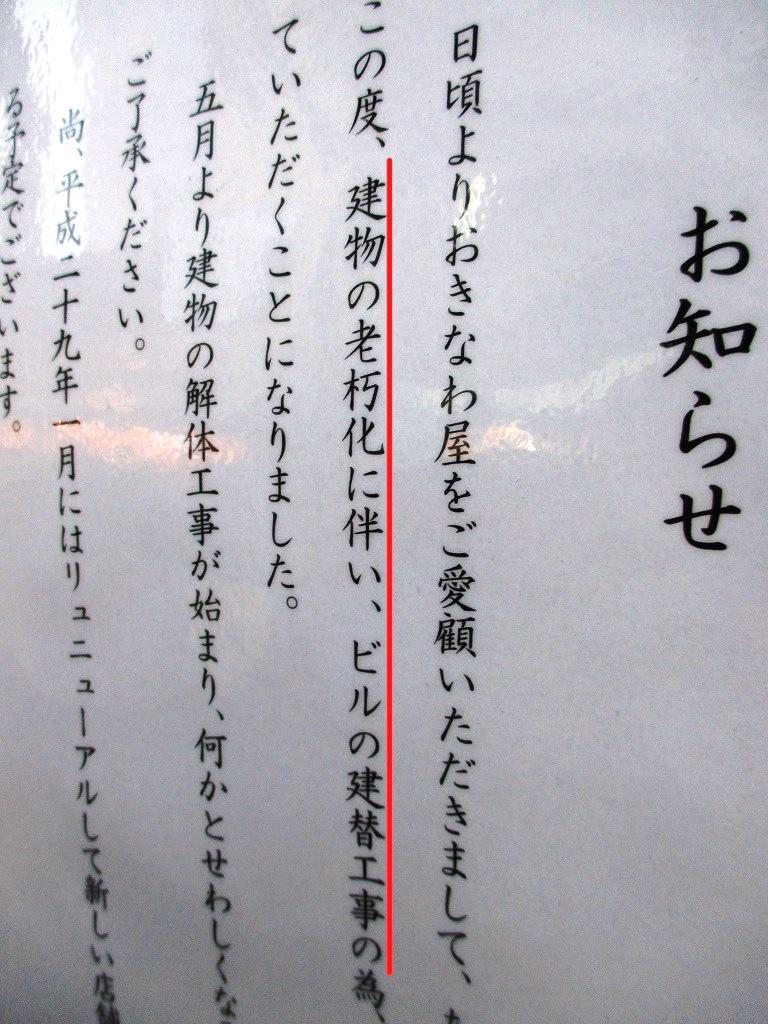 お知らせ
日頃よりおきなわ屋をご愛顧いただきまして、
この度、建物の老朽化に伴い、ビルの建替工事の為、
ていただくことになりました。
五月より建物の解体工事が始まり、何かとせわしくな
ご了承ください。
尚、平成二十九年一月にはリュニューアルして新しい店舗
る予定でございます。